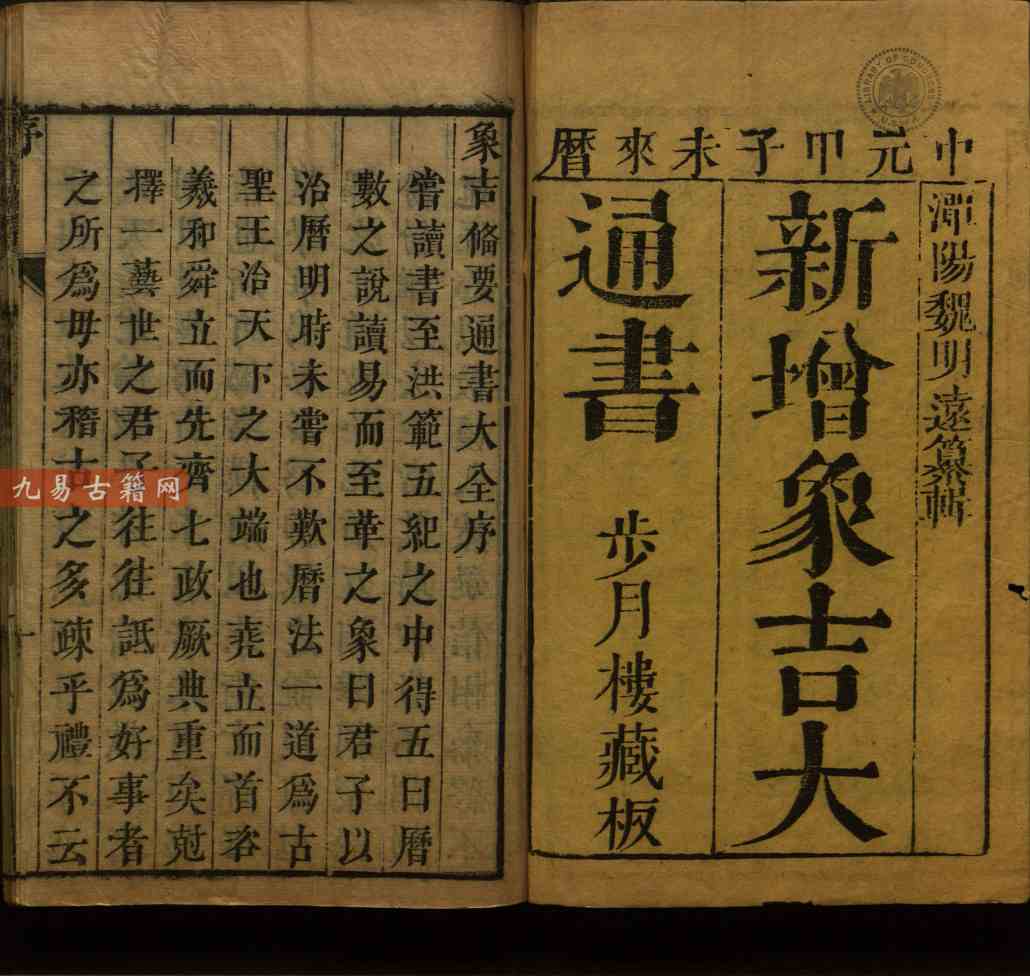 中元甲子未來曆
潭陽魏明遠纂輯
新增象吉大
通書
步月樓藏板
LIBRARY OF CONGRESS
象吉備要通書大全序
嘗讀書至洪範五紀之中得五曰曆
數之說讀易而至革之象曰君子以
治曆明時未嘗不歎曆法一道爲古
聖王治天下之大端也堯立而首咨
羲和舜立而先齊七政厥典重矣尅
擇一藝世之君子往往詆爲好事者
之所爲毋亦稽古之多疎乎禮不云
序
九易古籍网